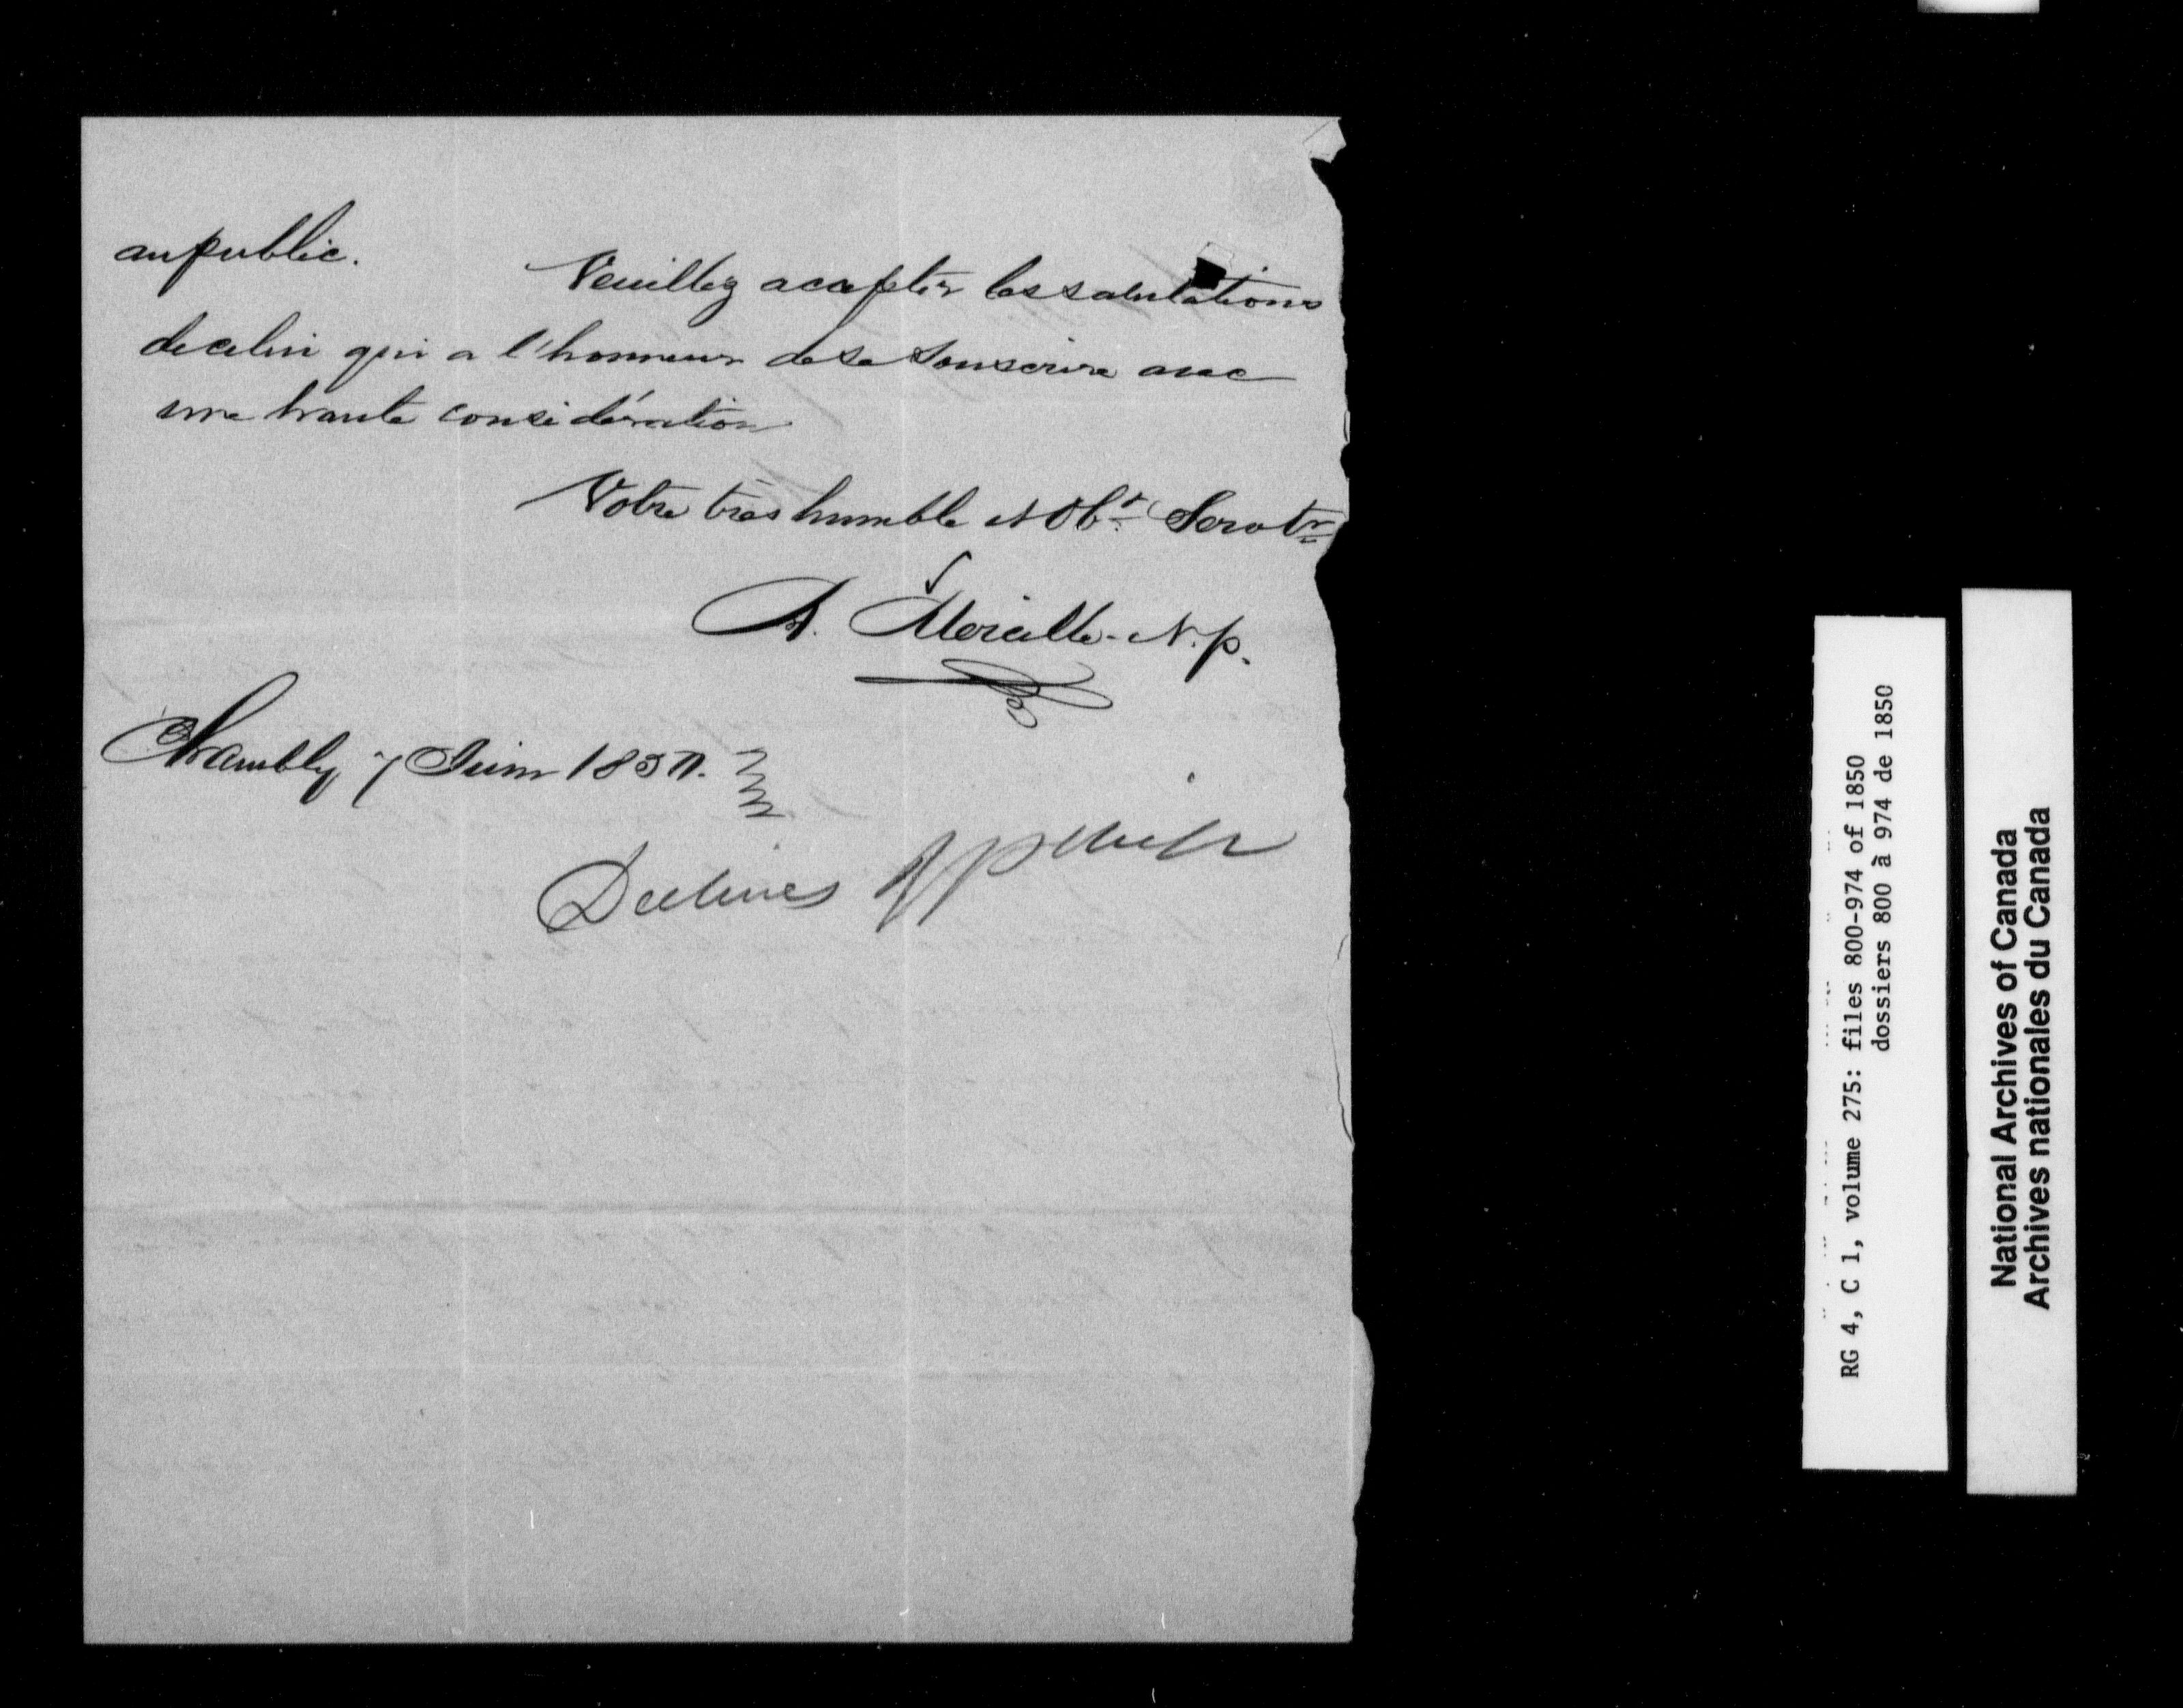 au public.
Veuillez accepter les salutations
de celui qui a l'honneur de se souscrire avec
une haute considération
Votre très humble et Obt. Servtr
Chambly 7 Juin 1850.
RG 4, C 1, volume 275: files 800-974 of 1850
dossiers 800 à 974 de 1850
National Archives of Canada
Archives nationales du Canada